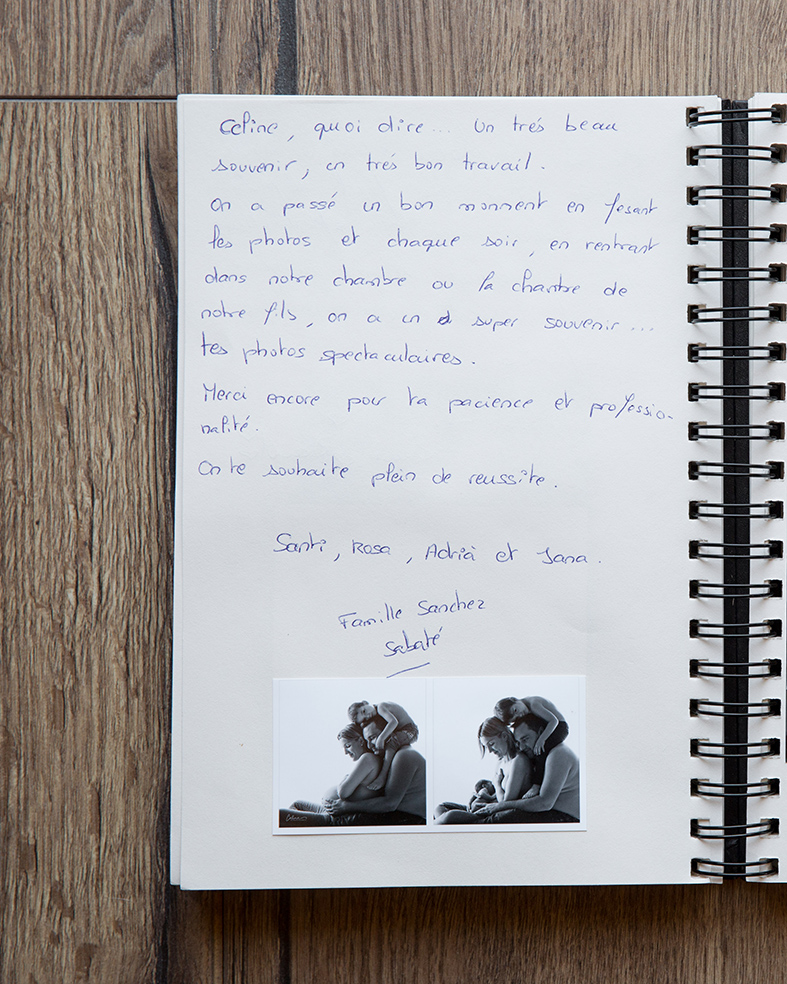 Celine, quoi dire... Un trés beau
souvenir, un trés bon travail.
On a passé un bon monment en fesant
les photos et chaque soir, en rentrant
dans notre chambre ou la chambre de
notre fils, on a un super souvenir...
tes photos spectaculaires.
Merci encore pour ta pacience et professio-
nalité.
On te souhaite plein de reussite.
Santi, Rosa, Adrià et Jana.
Famille Sanchez
Sabaté